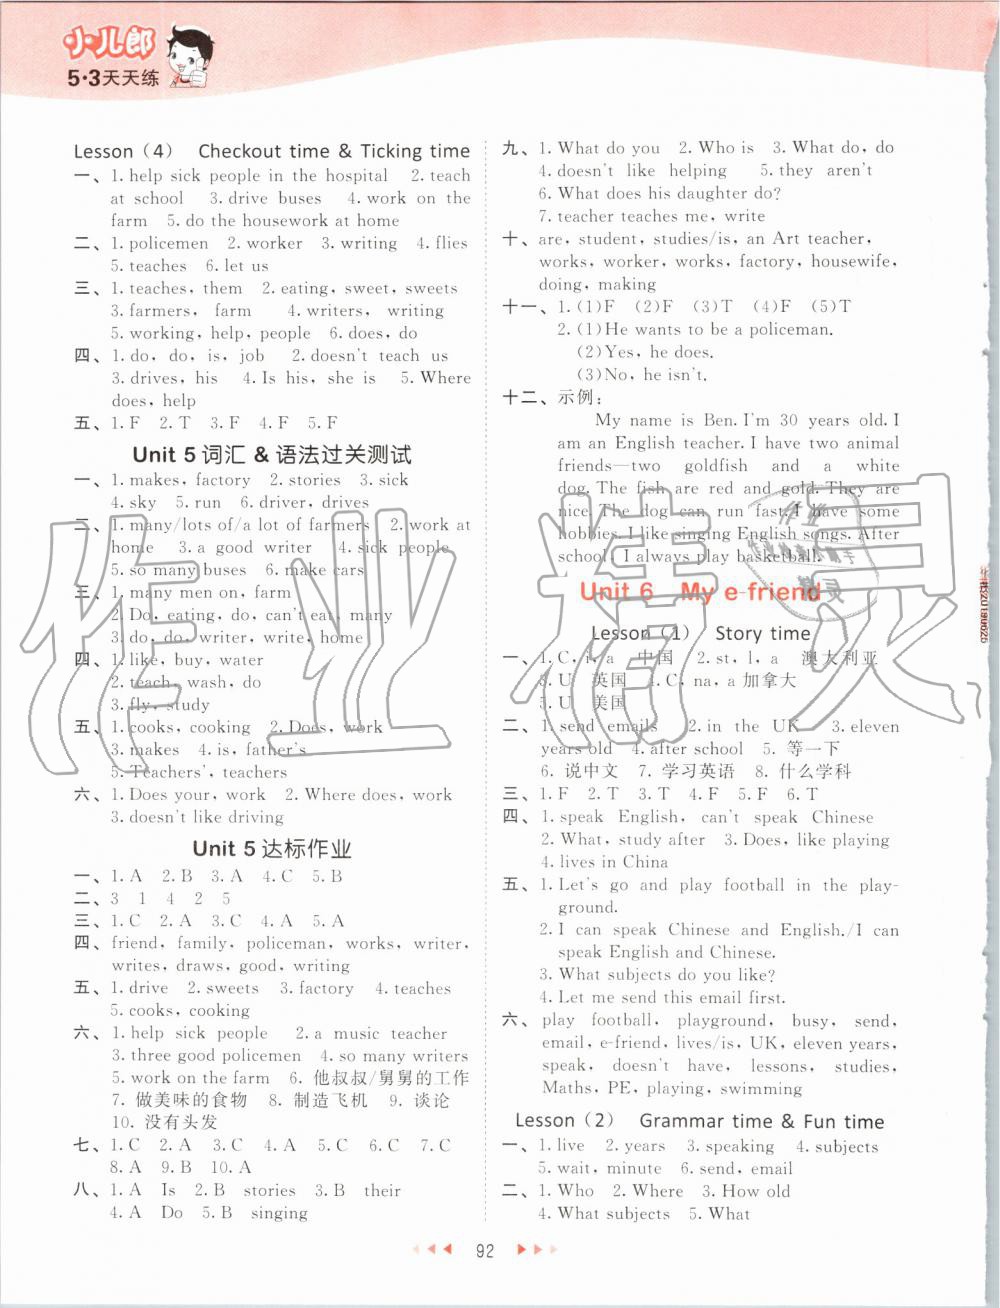 小儿郎
5·3天天练
Lesson（4） Checkout time & Ticking time
一、1. help sick people in the hospital 2. teach
at school 3. drive buses 4. work on the
farm 5. do the housework at home
二、1. policemen 2. worker 3. writing 4. flies
5. teaches 6. let us
三、1. teaches, them 2. eating, sweet, sweets
3. farmers, farm 4. writers, writing
5. working, help, people 6. does, do
四、1. do, do, is, job 2. doesn't teach us
3. drives, his 4. Is his, she is 5. Where
does, help
五、1. F 2. T 3. F 4. F 5. F
Unit 5 词汇 & 语法过关测试
一、1. makes, factory 2. stories 3. sick
4. sky 5. run 6. driver, drives
二、1. many/lots of/a lot of farmers 2. work at
home 3. a good writer 4. sick people
5. so many buses 6. make cars
三、1. many men on, farm
2. Do, eating, do, can't eat, many
3. do, do, writer, write, home
四、1. like, buy, water
2. teach, wash, do
3. fly, study
五、1. cooks, cooking 2. Does, work
3. makes 4. is, father's
5. Teachers', teachers
六、1. Does your, work 2. Where does, work
3. doesn't like driving
Unit 5 达标作业
一、1. A 2. B 3. A 4. C 5. B
二、3 1 4 2 5
三、1. C 2. A 3. C 4. A 5. A
四、friend, family, policeman, works, writer,
writes, draws, good, writing
五、1. drive 2. sweets 3. factory 4. teaches
5. cooks, cooking
六、1. help sick people 2. a music teacher
3. three good policemen 4. so many writers
5. work on the farm 6. 他叔叔/舅舅的工作
7. 做美味的食物 8. 制造飞机 9. 谈论
10. 没有头发
七、1. C 2. A 3. C 4. A 5. C 6. C 7. C
8. A 9. B 10. A
八、1. A Is 2. B stories 3. B their
4. A Do 5. B singing
九、1. What do you 2. Who is 3. What do, do
4. doesn't like helping 5. they aren't
6. What does his daughter do?
7. teacher teaches me, write
十、are, student, studies/is, an Art teacher,
works, worker, works, factory, housewife,
doing, making
十一、1. (1)F (2)F (3)T (4)F (5)T
2. (1)He wants to be a policeman.
(2)Yes, he does.
(3)No, he isn't.
十二、示例:
My name is Ben. I'm 30 years old. I
am an English teacher. I have two animal
friends—two goldfish and a white
dog. The fish are red and gold. They are
nice. The dog can run fast. I have some
hobbies. I like singing English songs. After
school, I always play basketball.
Unit 6 My e-friend
Lesson（1） Story time
一、1. C, i, a 中国 2. st, l, a 澳大利亚
3. U 英国 4. C, na, a 加拿大
5. U 美国
二、1. send emails 2. in the UK 3. eleven
years old 4. after school 5. 等一下
6. 说中文 7. 学习英语 8. 什么学科
三、1. F 2. T 3. T 4. F 5. F 6. T
四、1. speak English, can't speak Chinese
2. What, study after 3. Does, like playing
4. lives in China
五、1. Let's go and play football in the play-
ground.
2. I can speak Chinese and English./I can
speak English and Chinese.
3. What subjects do you like?
4. Let me send this email first.
六、play football, playground, busy, send,
email, e-friend, lives/is, UK, eleven years,
speak, doesn't have, lessons, studies,
Maths, PE, playing, swimming
Lesson（2） Grammar time & Fun time
一、1. live 2. years 3. speaking 4. subjects
5. wait, minute 6. send, email
二、1. Who 2. Where 3. How old
4. What subjects 5. What
92
作业精灵